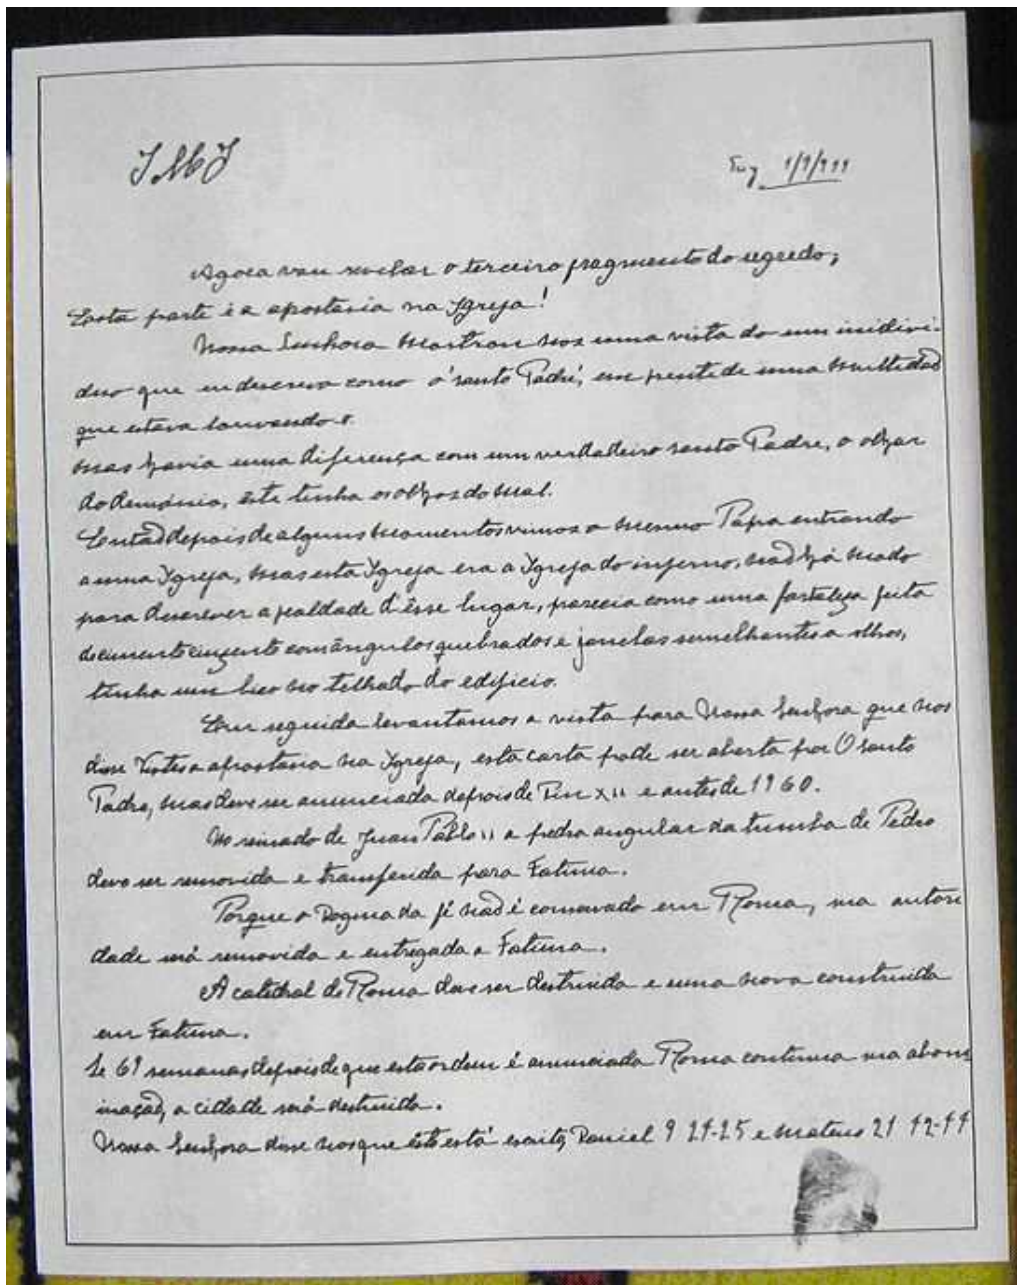 JMJ
Tuy 1/9/944
Agora vou revelar o terceiro fragmento do segredo;
Esta parte é a apostasia na Igreja!
Nossa Senhora mostrou nos uma vista do um inidivi-
duo que eu descrevo como o 'santo Padre', em frente de uma multidaõ
que estava louvando-o.
Mas havia uma diferença com um verdadeiro santo Padre, o olhar
do demónio, êste tinha os olhos do mal.
Entaõ depois de alguns momentos vimos o mesmo Papa entrando
a uma Igreja, mas esta Igreja era a Igreja do inferno, naõ há modo
para descrever a fealdade d'êsse lugar, parecia como uma fortaleza feita
de cimento cinzento com ângulos quebrados e janelas semelhantes a olhos,
tinha um bico no telhado do edificio.
Em seguida levantamos a vista para Nossa Senhora que nos
disse Vistes a apostasia na Igreja, esta carta pode ser aberta por O santo
Padre, mas deve ser anunciada depois de Pio XII e antes de 1960.
No reinado de Juan Pablo II a pedra angular da tumba de Pedro
deve ser removida e transferida para Fatima.
Porque o dogma da fé naõ é conservado em Roma, sua autori
dade será removida e entregada a Fatima.
A catedral de Roma deve ser destruida e uma nova construida
em Fatima.
Se 69 semanas depois de que esta ordem é anunciada Roma continua sua abom
inaçaõ, a cidade será destruida.
Nossa Senhora disse nos que êste está escrito, Daniel 9 24-25 e Mateus 21 42-44